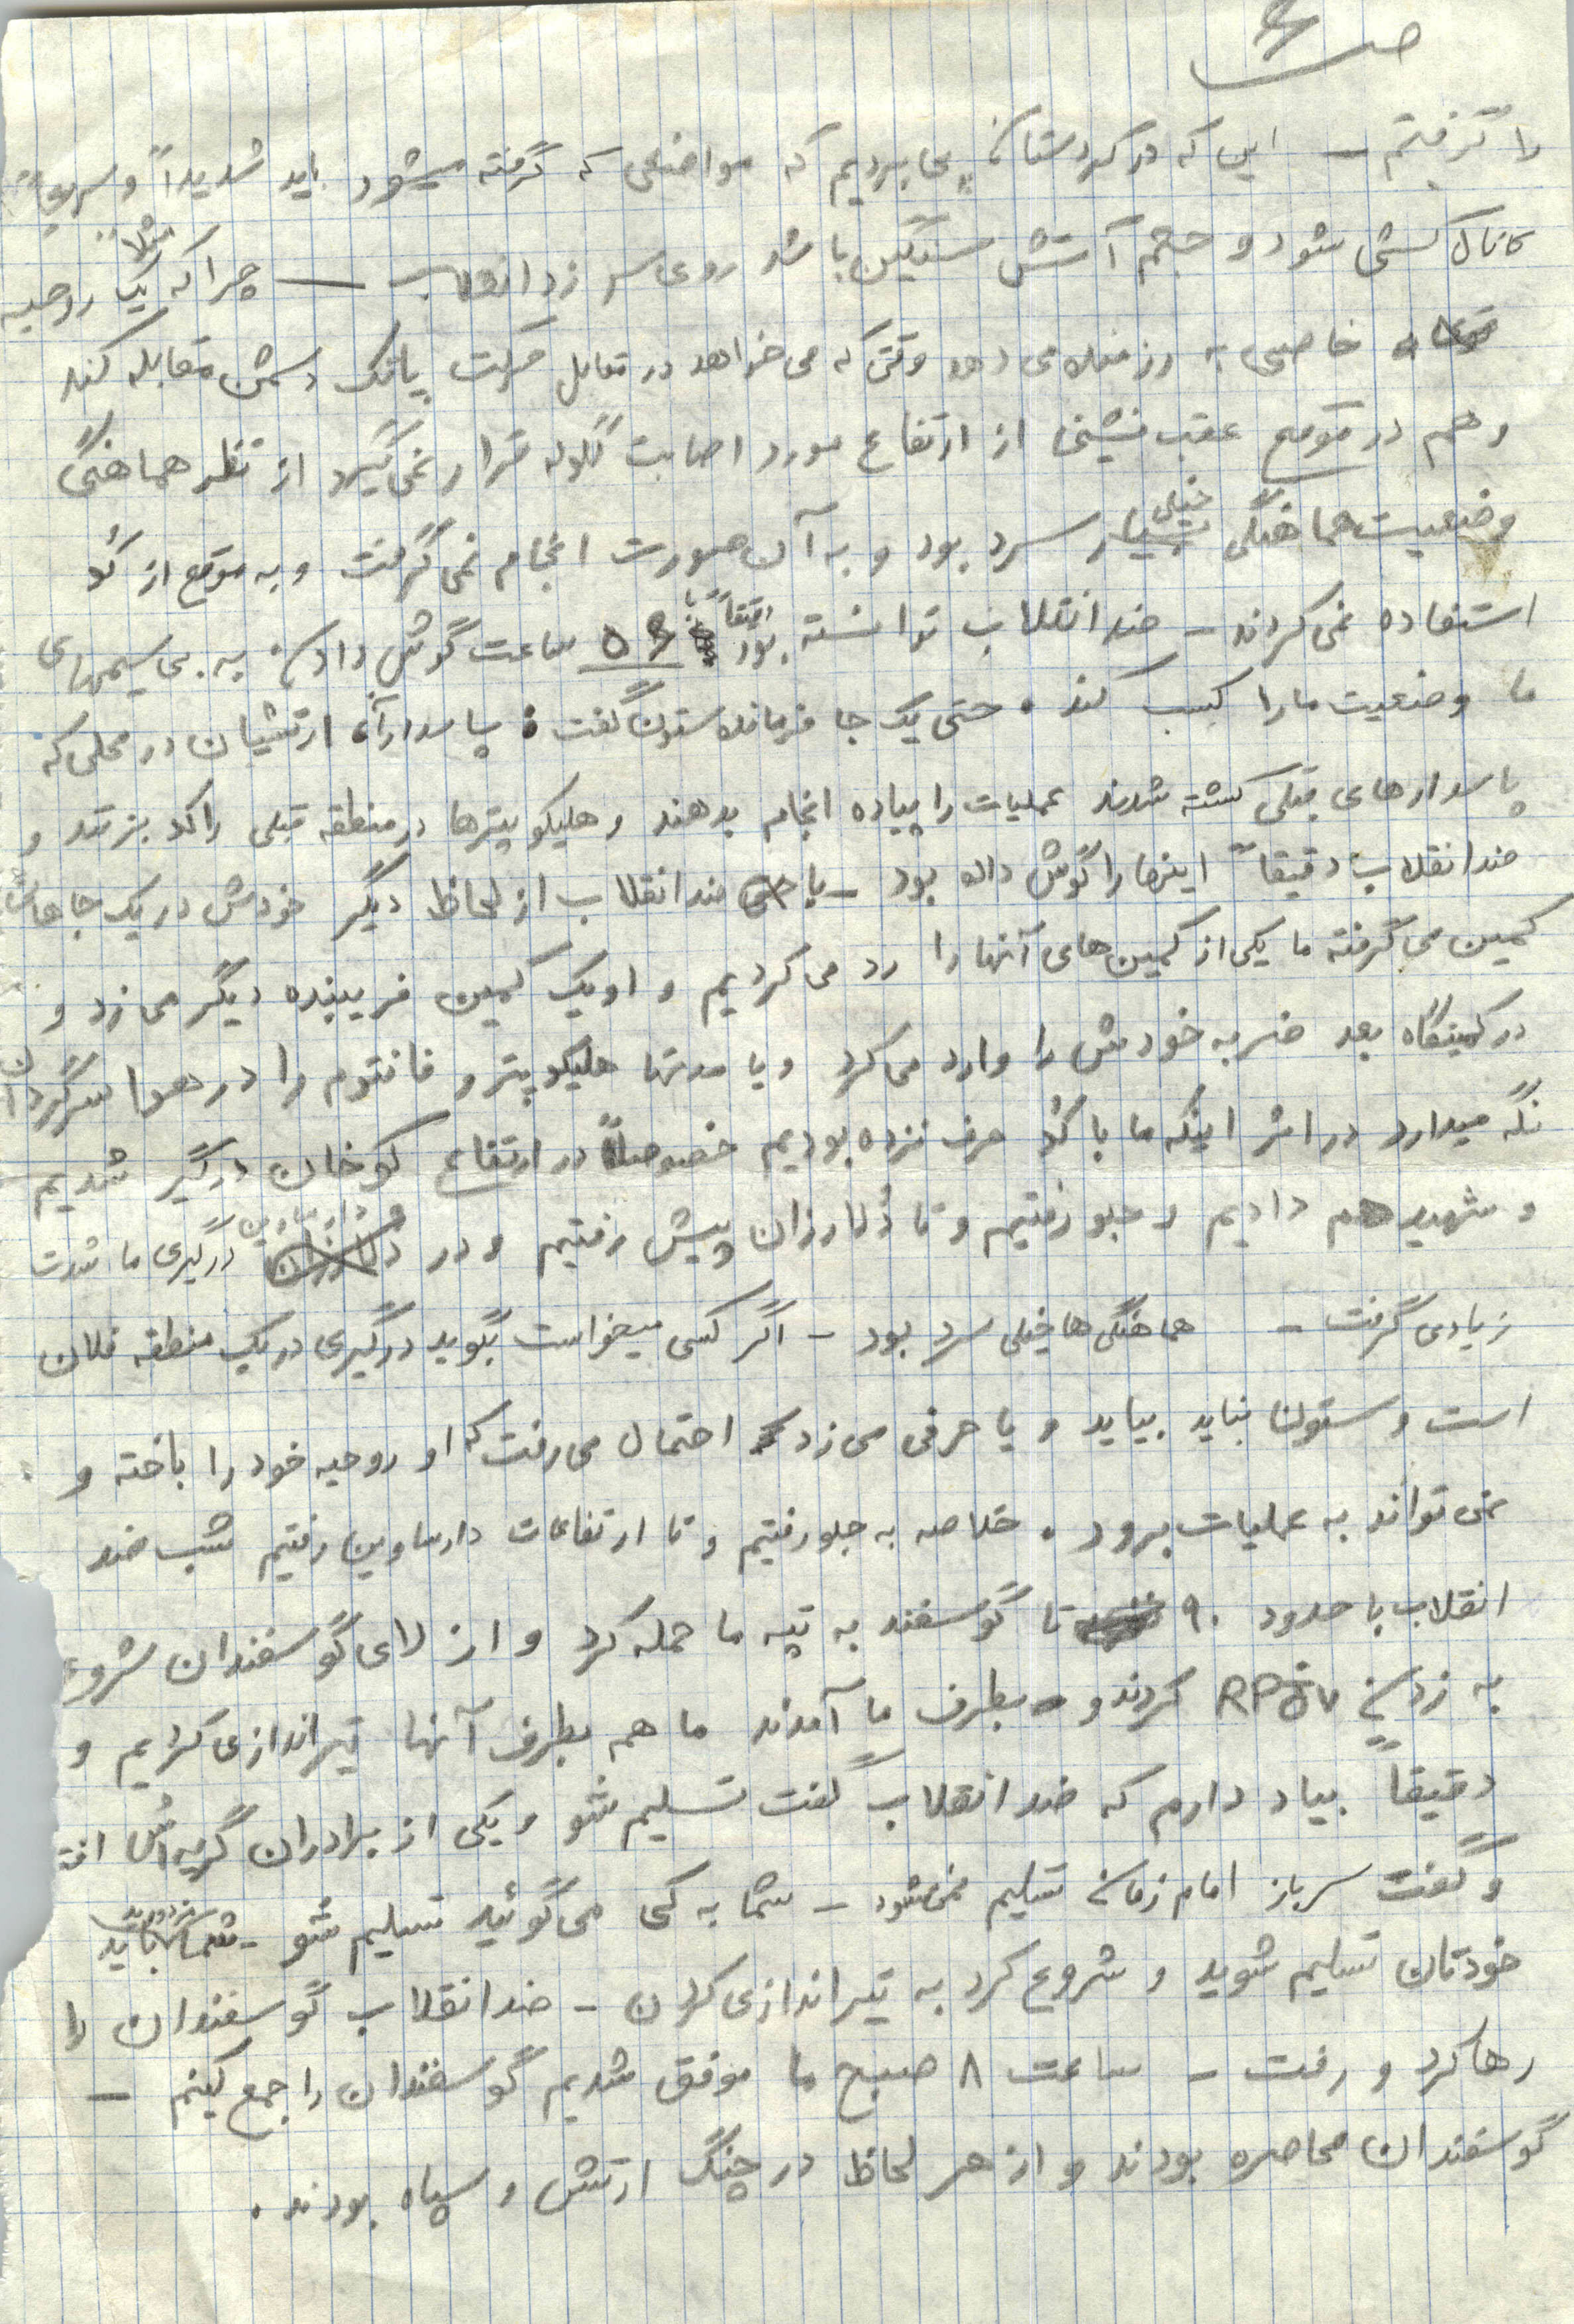 ص ۴
را گرفتیم – این که در کردستان پی بردیم که مواضعی که گرفته میشود باید شدیداً و سریعاً
کانال کشی شود و حجم آتش سنگین باشد روی سر ضد انقلاب – چرا که مثلاً یک روحیه
خاصی به رزمنده می دهد وقتی که می خواهد در مقابل حرکت پاتک دشمن مقابله کند
و هم در موقع عقب نشینی از ارتفاع مورد اصابت گلوله قرار نمی گیرد از نظر هماهنگی
وضعیت هماهنگی خیلی سرد بود و به آن صورت انجام نمی گرفت و به موقع از کُد
استفاده نمی کردند – ضد انقلاب توانسته بود دقیقاً با ۵۴ ساعت گوش دادن به بی سیمهای
ما وضعیت ما را کسب کند. حتی یک جا فرمانده ستون گفت: پاسداران، ارتشیان در محلی که
پاسدارهای قبلی کشته شدند عملیات را پیاده انجام بدهند و هلیکوپترها در منطقه قبلی راکد بزنند و
ضد انقلاب دقیقاً اینها را گوش داده بود – یا ضد انقلاب از لحاظ دیگر خودش در یک جاهائی
کمین می گرفته ما یکی از کمین های آنها را رد می کردیم و او یک کمین فریبنده دیگر می زد و
در کمینگاه بعد ضربه خودش را وارد می کرد و یا مدتها هلیکوپتر و فانتوم را در هوا سرگردان
نگه میدارد در اثر اینکه ما با کُد حرف نزده بودیم خصوصاً در ارتفاع کوخان درگیر شدیم
و شهید هم دادیم و جلو رفتیم و تا دُلارزان پیش رفتیم و در دارساوین درگیری ما شدت
زیادی گرفت – هماهنگی ها خیلی سرد بود – اگر کسی میخواست بگوید درگیری در یک منطقه فلان
است و ستون نباید بیاید و یا حرفی می زد احتمال می رفت که او روحیه خود را باخته و
نمی تواند به عملیات برود. خلاصه به جلو رفتیم و تا ارتفاعات دارساوین رفتیم شب ضد
انقلاب با حدود ۹۰ تا گوسفند به تپه ما حمله کرد و از لای گوسفندان شروع
به زدن RPG۷ کردند و بطرف ما آمدند ما هم بطرف آنها تیراندازی کردیم و
دقیقاً بیاد دارم که ضد انقلاب گفت تسلیم شو و یکی از برادران گریه اش
و گفت سرباز امام زمان تسلیم نمی شود – شما به کی می گوئید تسلیم شو –
خودتان تسلیم شوید و شروع کرد به تیراندازی کردن – ضد انقلاب گوسفندان را
رها کرد و رفت – ساعت ۸ صبح ما موفق شدیم گوسفندان را جمع کنیم –
گوسفندان محاصره بودند و از هر لحاظ در چنگ ارتش و سپاه بودند.